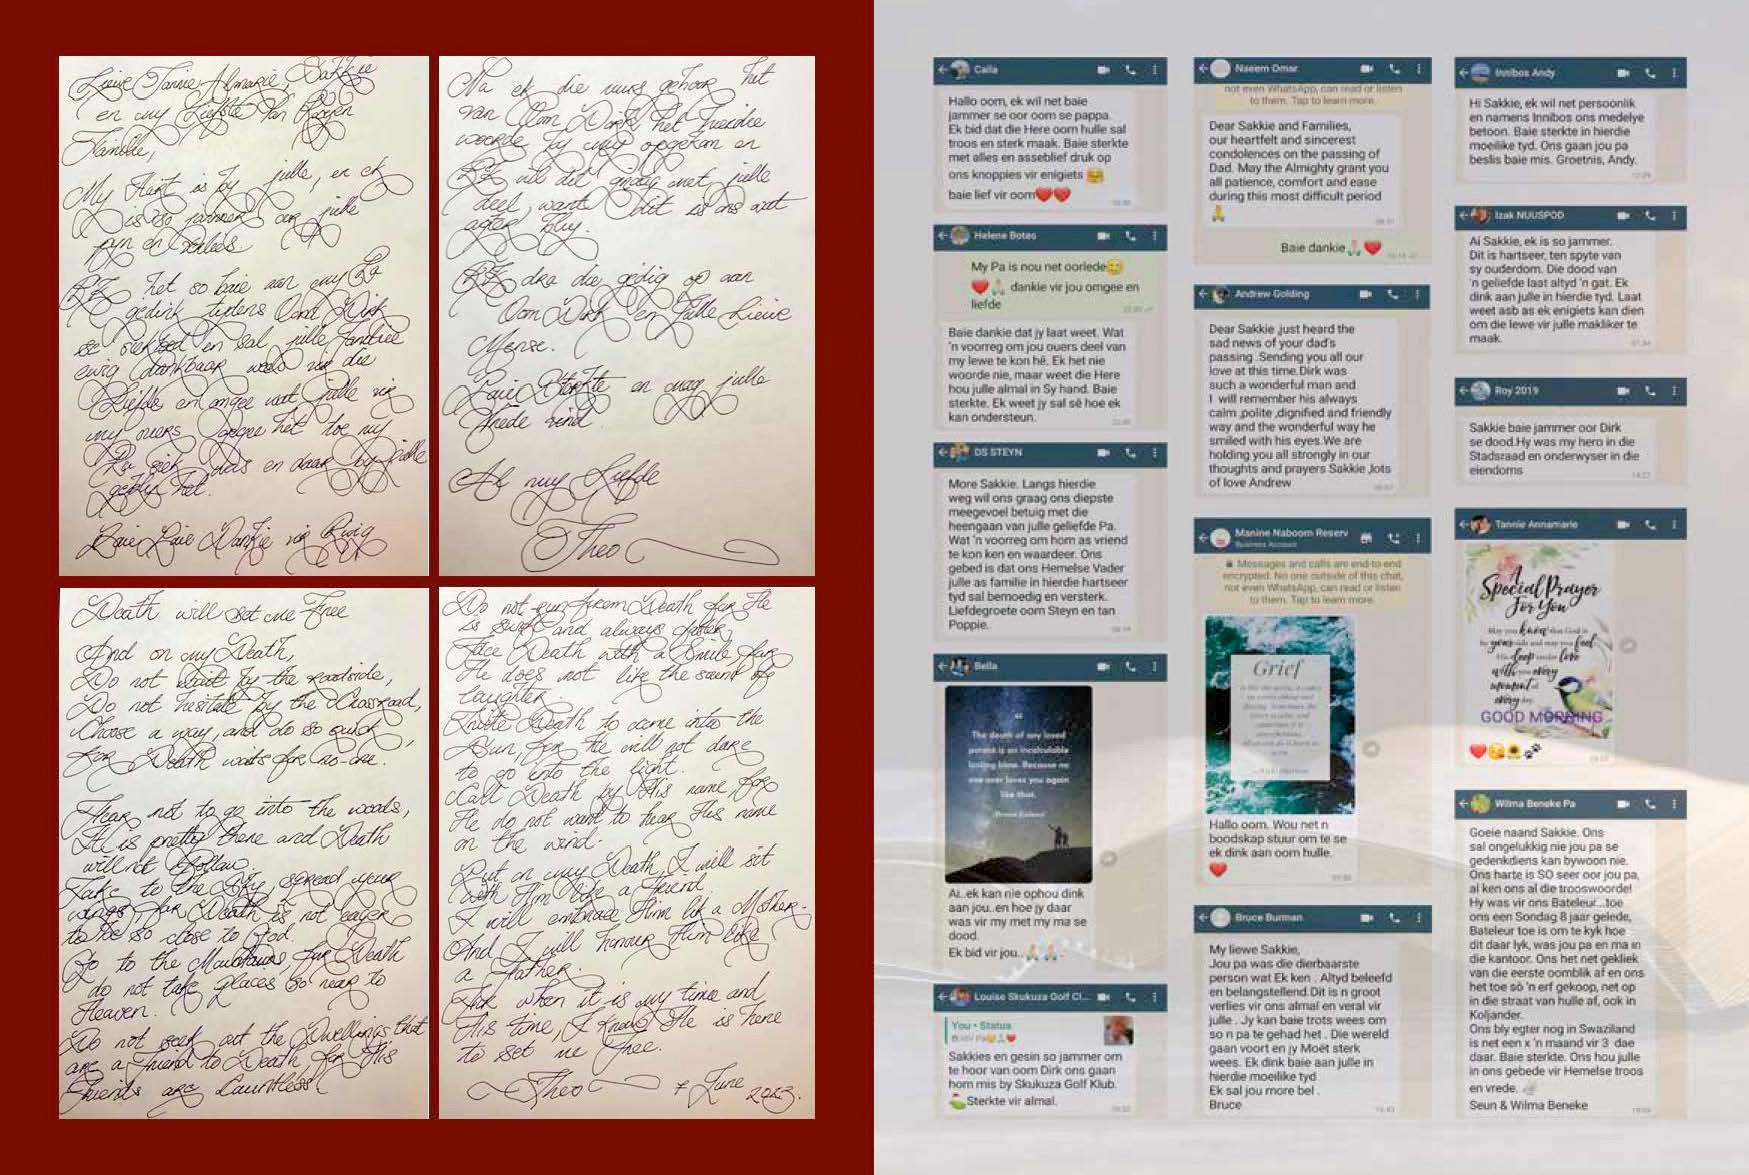 Lieve Tannie Almarie, Sakkie
en my Liefste Van Rooyen
Familie,
My Hart is by julle, en ek
is so jammer oor julle
pyn en verlies.
Ek het so baie aan my Pa
gedink tydens Oom Dirk
se siekbed en sal julle familie
ewig dankbaar wees vir die
Liefde en omgee wat julle vir
my ouers gegee het toe my
Pa siek was en daar by julle
gebly het.
Baie Baie Dankie vir Ewig
Na ek die nuus gehoor het
van Oom Dirk het hierdie
woorde by my opgekom en
Ek wil dit graag met julle
deel, want dit is ons wat
agter bly.
Ek dra die gedig op aan
Oom Dirk en Julle Lieve
Mense.
Baie Sterkte en mag julle
Vrede vind.
Al my Liefde
Theo
Death will set me Free
And on my Death,
Do not wait by the roadside,
Do not hesitate by the Crossroad,
Choose a way, and do so quick,
for Death waits for no-one.
Fear not to go into the woods,
It is pretty there and Death
will not follow.
Take to the Sky, spread your
wings, for Death is not eager
to be so close to God.
Go to the Mountains, for Death
do not take places so near to
Heaven.
Do not seek out the Dwellings that
are a friend to Death for His
Friends are Dauntless
Do not run from Death for He
is swift and always faster,
Face Death with a Smile for
He does not like the sound of
laughter.
Invite Death to come into the
Sun, for He will not dare
to go into the light.
Call Death by His name for
He do not want to hear His name
on the wind.
But on my Death I will sit
with Him like a Friend.
I will embrace Him lik a Mother.
And I will honour Him like
a Father.
For when it is my time and
His time, I know He is here
to set me free.
Theo 7 June 2023.
Caila
Hallo oom, ek wil net baie
jammer se oor oom se pappa.
Ek bid dat die Here oom hulle sal
troos en sterk maak. Baie sterkte
met alles en asseblief druk op
ons knoppies vir enigiets 😊
baie lief vir oom❤️❤️
Helene Botes
My Pa is nou net oorlede😢
❤️🙏 dankie vir jou omgee en
liefde
Baie dankie dat jy laat weet. Wat
'n voorreg om jou ouers deel van
my lewe te kon hê. Ek het nie
woorde nie, maar weet die Here
hou julle almal in Sy hand. Baie
sterkte. Ek weet jy sal sê hoe ek
kan ondersteun.
DS STEYN
More Sakkie. Langs hierdie
weg wil ons graag ons diepste
meegevoel betuig met die
heengaan van julle geliefde Pa.
Wat 'n voorreg om hom as vriend
te kon ken en waardeer. Ons
gebed is dat ons Hemelse Vader
julle as familie in hierdie hartseer
tyd sal bemoedig en versterk.
Liefdegroete oom Steyn en tan
Poppie.
Bella
The death of any loved
parent is an incalculable
lasting blow. Because no
one ever loves you again
like that.
Ai..ek kan nie ophou dink
aan jou..en hoe jy daar
was vir my met my ma se
dood.
Ek bid vir jou..🙏🙏
Louise Skukuza Golf Cl...
You • Status
Sakkies en gesin so jammer om
te hoor van oom Dirk ons gaan
hom mis by Skukuza Golf Klub.
⛳Sterkte vir almal.
Naeem Omar
not even WhatsApp, can read or listen
to them. Tap to learn more.
Dear Sakkie and Families,
our heartfelt and sincerest
condolences on the passing of
Dad. May the Almighty grant you
all patience, comfort and ease
during this most difficult period
🙏
Baie dankie🙏❤️
Andrew Golding
Dear Sakkie ,just heard the
sad news of your dad's
passing .Sending you all our
love at this time.Dirk was
such a wonderful man and
I will remember his always
calm ,polite ,dignified and friendly
way and the wonderful way he
smiled with his eyes.We are
holding you all strongly in our
thoughts and prayers Sakkie ,lots
of love Andrew
Manine Naboom Reserv
Business Account
Messages and calls are end-to-end
encrypted. No one outside of this chat,
not even WhatsApp, can read or listen
to them. Tap to learn more.
Grief
Hallo oom. Wou net n
boodskap stuur om te se
ek dink aan oom hulle.
❤️
Bruce Burman
My liewe Sakkie,
Jou pa was die dierbaarste
person wat Ek ken . Altyd beleefd
en belangstellend.Dit is n groot
verlies vir ons almal en veral vir
julle . Jy kan baie trots wees om
so n pa te gehad het . Die wereld
gaan voort en jy Moët sterk
wees. Ek dink baie aan julle in
hierdie moeilike tyd
Ek sal jou more bel .
Bruce
Innibos Andy
Hi Sakkie, ek wil net persoonlik
en namens Innibos ons medelye
betoon. Baie sterkte in hierdie
moeilike tyd. Ons gaan jou pa
beslis baie mis. Groetnis, Andy.
Izak NUUSPOD
Ai Sakkie, ek is so jammer.
Dit is hartseer, ten spyte van
sy ouderdom. Die dood van
'n geliefde laat altyd 'n gat. Ek
dink aan julle in hierdie tyd. Laat
weet asb as ek enigiets kan dien
om die lewe vir julle makliker te
maak.
Roy 2019
Sakkie baie jammer oor Dirk
se dood.Hy was my hero in die
Stadsraad en onderwyser in die
eiendoms
Tannie Annamarie
A
Special Prayer
For You
May you know that God is
by your side and may you feel
His deep tender love
with you every
moment of
every day.
GOOD MORNING
❤️😘🌻🐾
Wilma Beneke Pa
Goeie naand Sakkie. Ons
sal ongelukkig nie jou pa se
gedenkdiens kan bywoon nie.
Ons harte is SO seer oor jou pa,
al ken ons al die trooswoorde!
Hy was vir ons Bateleur...toe
ons een Sondag 8 jaar gelede,
Bateleur toe is om te kyk hoe
dit daar lyk, was jou pa en ma in
die kantoor. Ons het net gekliek
van die eerste oomblik af en ons
het toe sò 'n erf gekoop, net op
in die straat van hulle af, ook in
Koljander.
Ons bly egter nog in Swaziland
is net een x 'n maand vir 3 dae
daar. Baie sterkte. Ons hou julle
in ons gebede vir Hemelse troos
en vrede.
Seun & Wilma Beneke